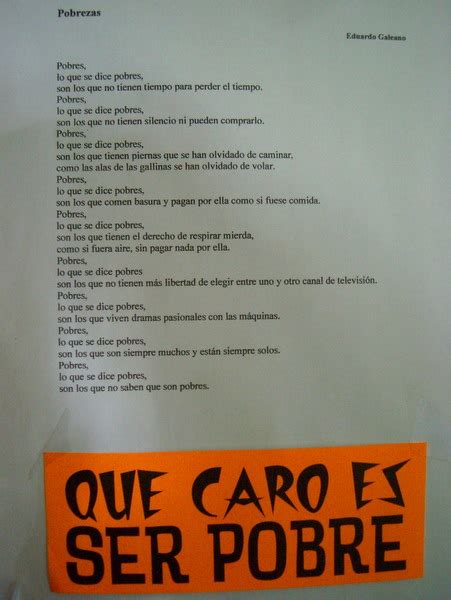 Pobrezas
Eduardo Galeano
Pobres,
lo que se dice pobres,
son los que no tienen tiempo para perder el tiempo.
Pobres,
lo que se dice pobres,
son los que no tienen silencio ni pueden comprarlo.
Pobres,
lo que se dice pobres,
son los que tienen piernas que se han olvidado de caminar,
como las alas de las gallinas se han olvidado de volar.
Pobres,
lo que se dice pobres,
son los que comen basura y pagan por ella como si fuese comida.
Pobres,
lo que se dice pobres,
son los que tienen el derecho de respirar mierda,
como si fuera aire, sin pagar nada por ella.
Pobres,
lo que se dice pobres
son los que no tienen más libertad de elegir entre uno y otro canal de televisión.
Pobres,
lo que se dice pobres,
son los que viven dramas pasionales con las máquinas.
Pobres,
lo que se dice pobres,
son los que son siempre muchos y están siempre solos.
Pobres,
lo que se dice pobres,
son los que no saben que son pobres.
QUE CARO ES
SER POBRE